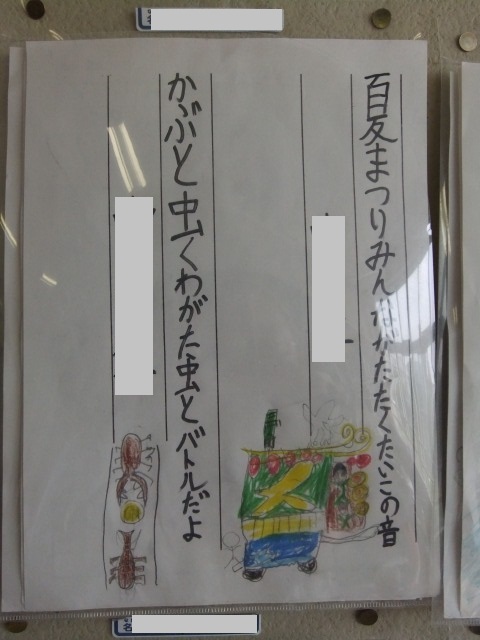 夏まつりみんながたたくたいこの音
かぶと虫くわがた虫とバトルだよ